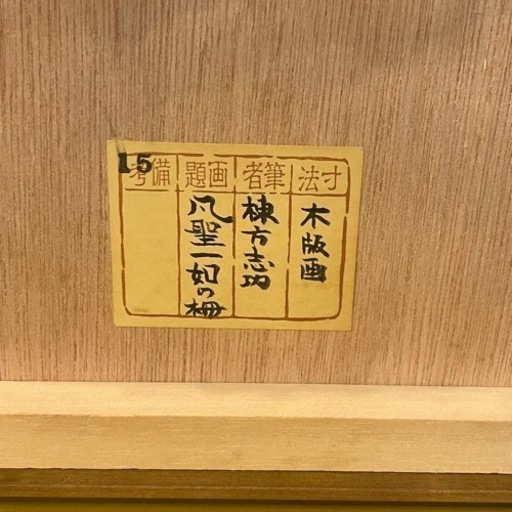 寸法
木版画
筆者
棟方志功
画題
凡聖一如の柵
備考
15